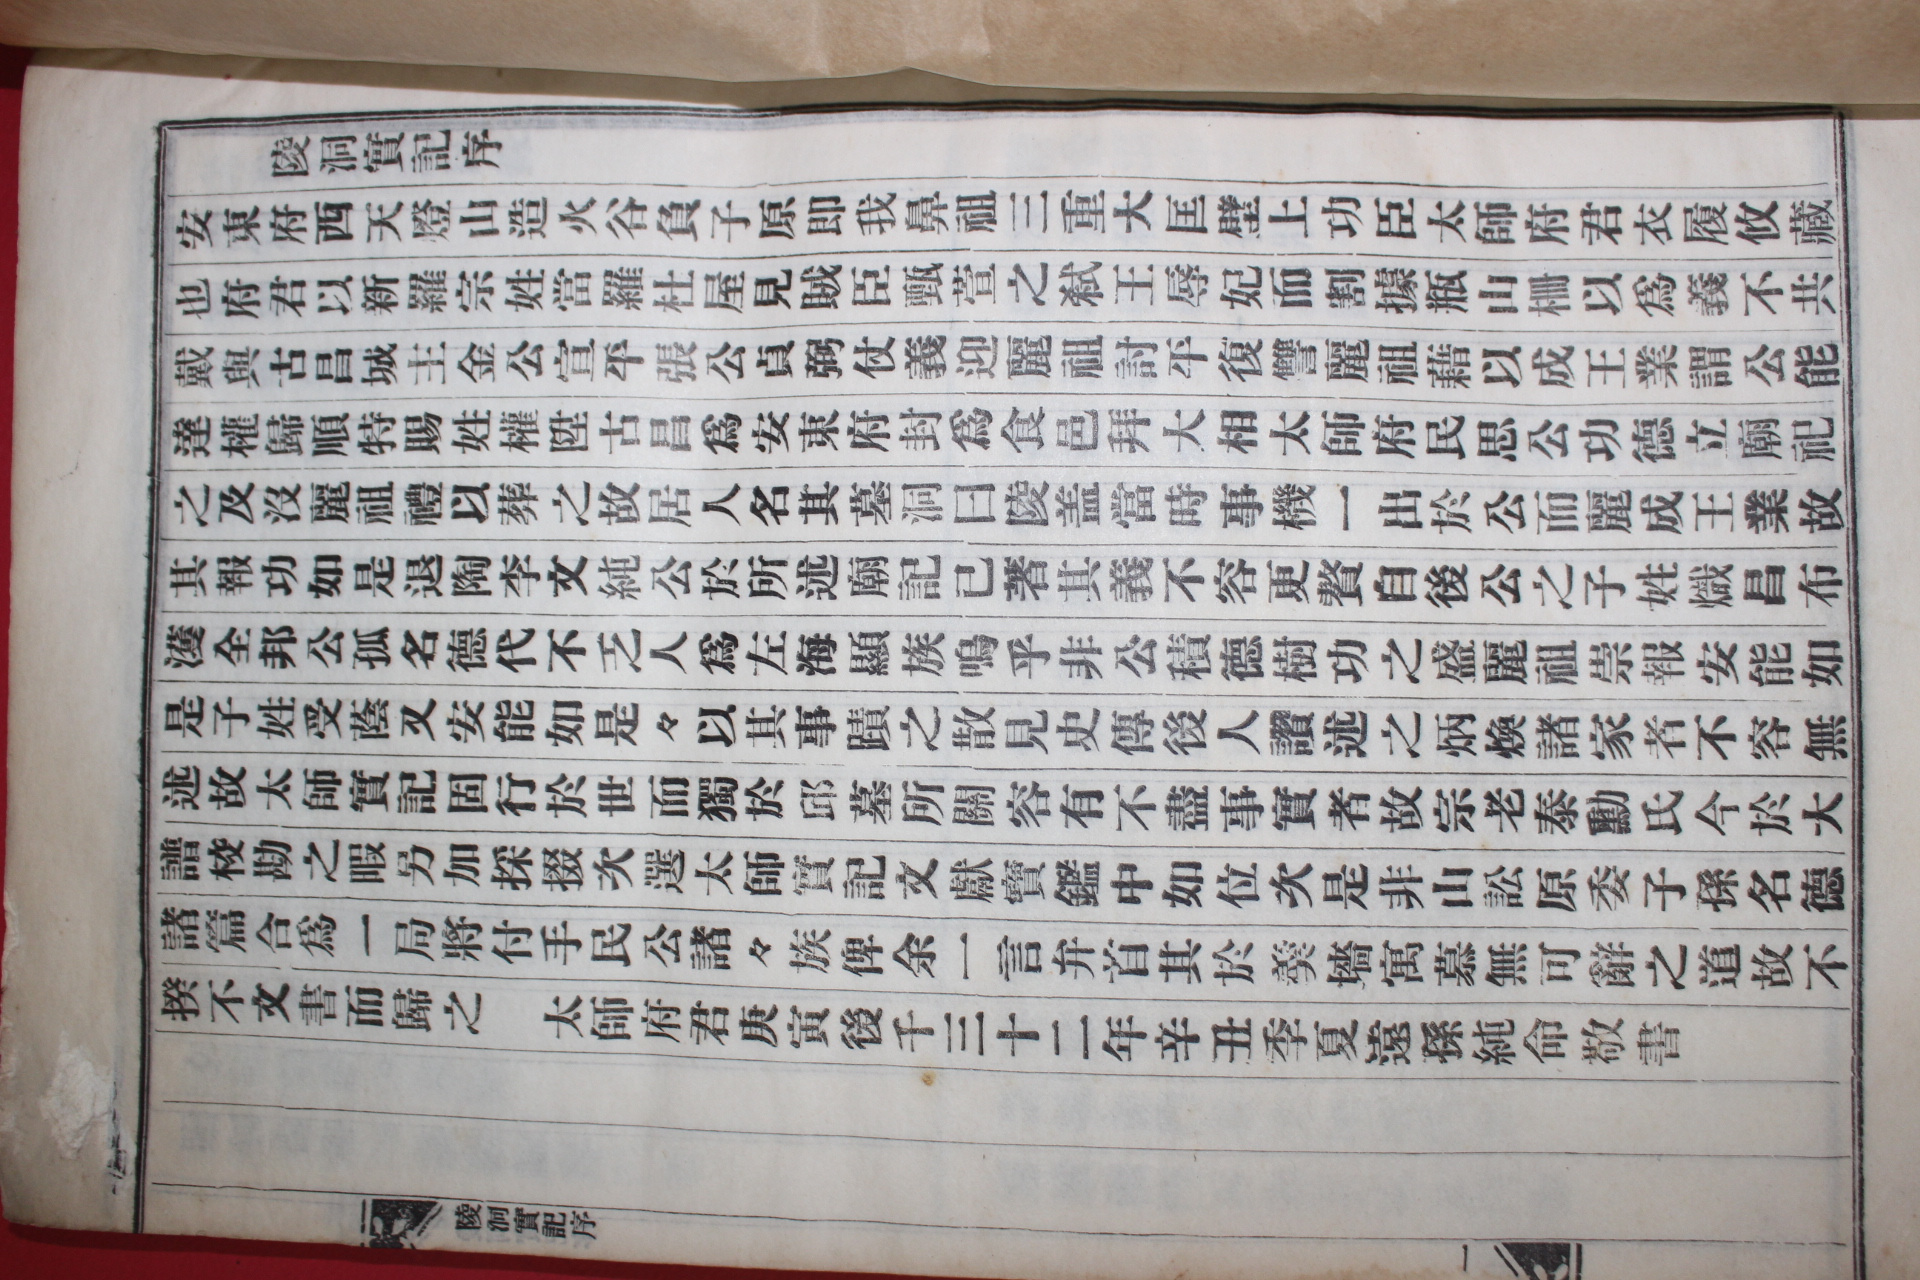 陵洞實記序
安東府西天燈山造火谷負子原即我鼻祖三重大匡壁上功臣太師府君衣履攸藏
也府君以新羅宗姓當羅杜屋見賊臣甄萱之弑王辱妃而割據瓶山柵以爲義不共
戴與古昌城主金公宣平張公貞弼仗義迎麗祖討平復讐麗祖藉以成王業謂公能
達權歸順特賜姓權陞古昌爲安東府封爲食邑拜大相太師府民思公功德立廟祀
之及沒麗祖禮以葬之故居人名其墓洞曰陵盖當時事機一出於公而麗成王業故
其報功如是退陶李文純公於所述廟記已著其義不容更贅自後公之子姓熾昌布
濩全邦公孤名德代不乏人爲左海顯族嗚乎非公積德樹功之盛麗祖崇報安能如
是子姓受蔭又安能如是々以其事蹟之散見史傳後人讚述之炳煥諸家者不容無
述故太師實記固行於世而獨於邱墓所關容有不盡事實者故宗老泰勳氏今於大
譜校勘之暇另加採掇次選太師實記文獻寶鑑中如位次是非山訟原委子孫名德
諸篇合爲一局將付手民公諸々族俾余一言弁首其於羹墻寓慕無可辭之道故不
揆不文書而歸之　太師府君庚寅後千三十二年辛丑季夏遠孫純命敬書
陵洞實記序
一